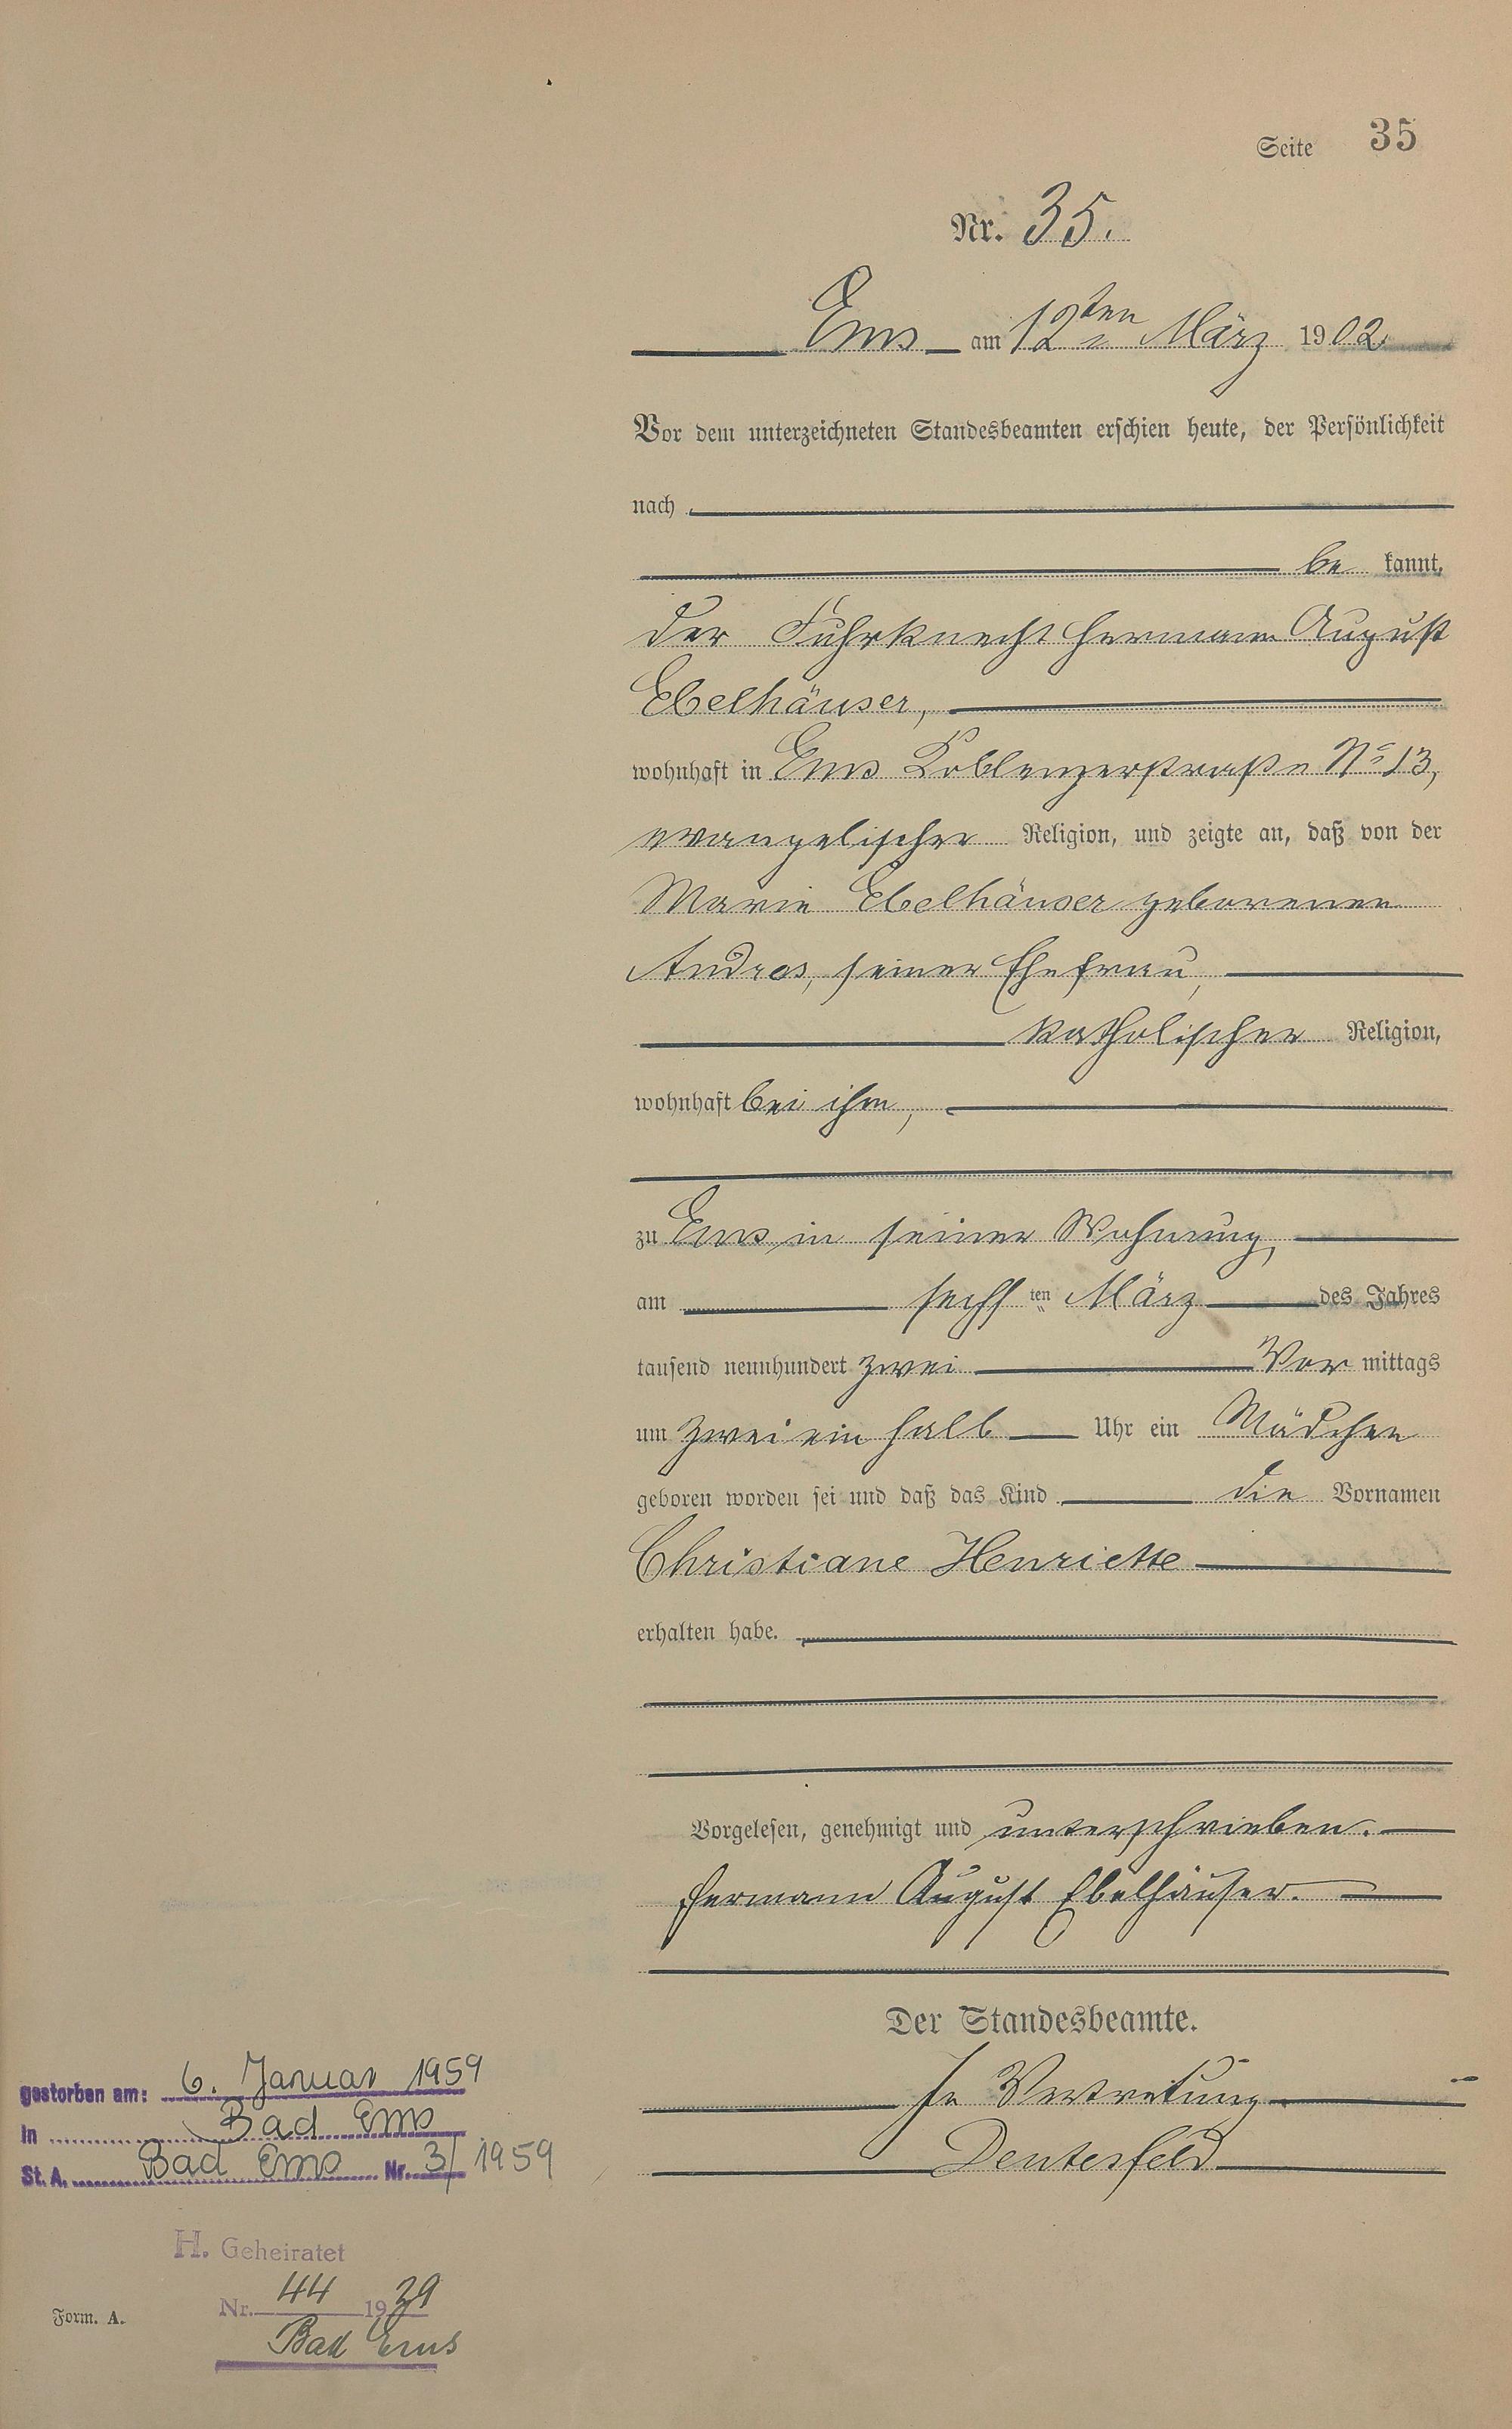 Seite 35
Nr. 35.
Ems am 12ten März 1902
Vor dem unterzeichneten Standesbeamten erschien heute, der Persönlichkeit
nach
be kannt,
der Fuhrknecht Hermann August
Ebelhäuser,
wohnhaft in Ems Koblenzerstraße No 13,
evangelischer Religion, und zeigte an, daß von der
Marie Ebelhäuser geborenen
Andres, seiner Ehefrau,
katholischer Religion,
wohnhaft bei ihm,
zu Ems in seiner Wohnung,
am sechsten März des Jahres
tausend neunhundert zwei Vor mittags
um zwei ein halb Uhr ein Mädchen
geboren worden sei und daß das Kind die Vornamen
Christiane Henriette
erhalten habe.
Vorgelesen, genehmigt und unterschrieben.
Hermann August Ebelhäuser.
Der Standesbeamte.
In Vertretung
gestorben am: 6. Januar 1959
in Bad Ems
St. A. Bad Ems Nr. 3/1959
H. Geheiratet
Nr. 44 1929
Bad Ems
Form. A.